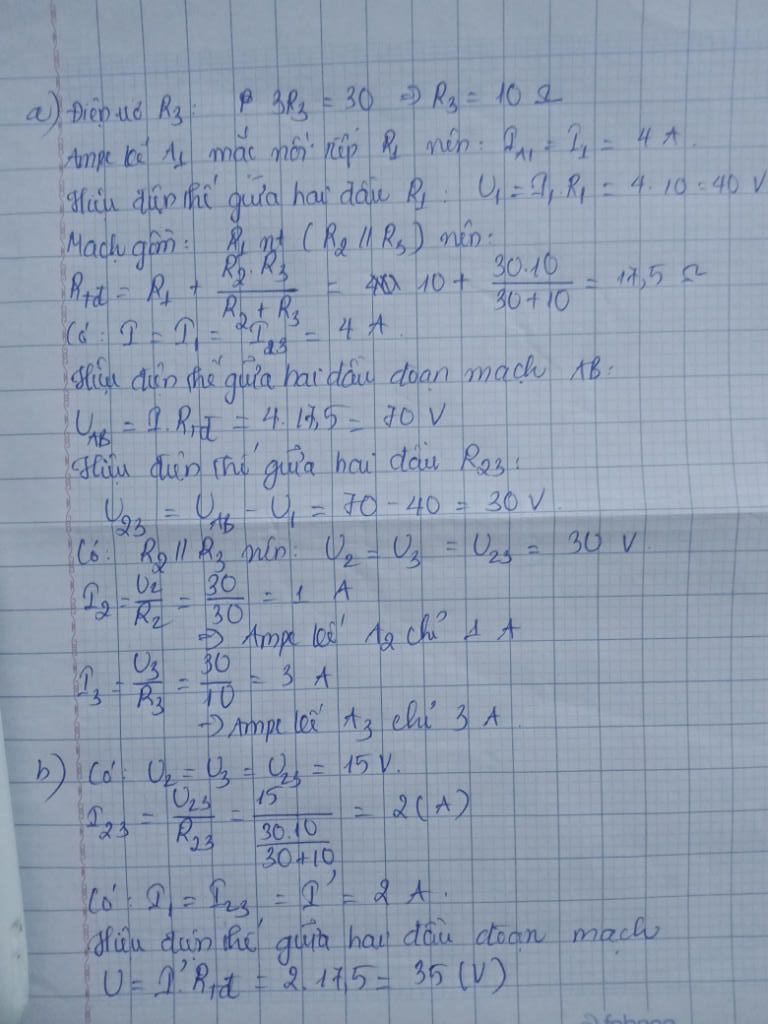 a) Điện trở R3: 3R3 = 30 => R3 = 10 Ω
Ampe kế A1 mắc nối tiếp R1 nên: IA1 = I1 = 4 A.
Hiệu điện thế giữa hai đầu R1: U1 = I1.R1 = 4.10 = 40 V
Mạch gồm: R1 nt (R2 // R3) nên:
Rtđ = R1 + R2.R3 / (R2 + R3) = 10 + 30.10 / (30+10) = 17,5 Ω
Có: I = I1 = I23 = 4 A.
Hiệu điện thế giữa hai đầu đoạn mạch AB:
UAB = I.Rtđ = 4.17,5 = 70 V
Hiệu điện thế giữa hai đầu R23:
U23 = UAB - U1 = 70 - 40 = 30 V.
Có: R2 // R3 nên: U2 = U3 = U23 = 30 V.
I2 = U2/R2 = 30/30 = 1 A
=> Ampe kế A2 chỉ 1 A
I3 = U3/R3 = 30/10 = 3 A
=> Ampe kế A3 chỉ 3 A.
b) Có: U2 = U3 = U23 = 15 V.
I23 = U23/R23 = 15 / (30.10 / (30+10)) = 2 (A)
Có: I1 = I23 = I' = 2 A.
Hiệu điện thế giữa hai đầu đoạn mạch
U = I'.Rtđ = 2.17,5 = 35 (V)